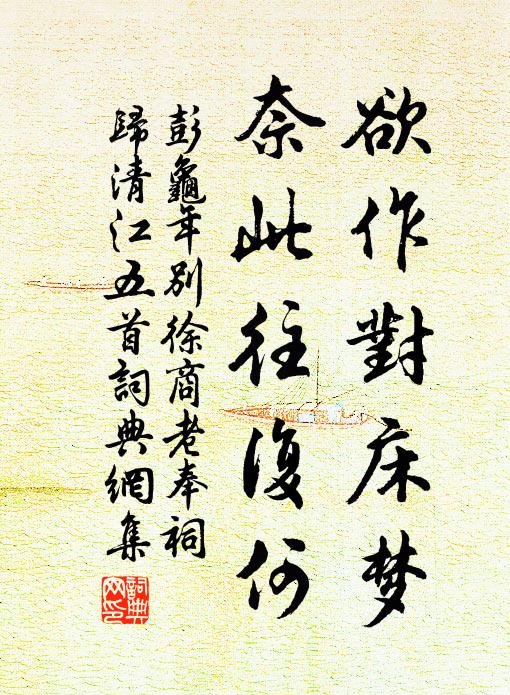 欲作對床梦
奈此往復何
彭龜年別徐商老奉祠
歸清江五首詞典網集
詞典網印